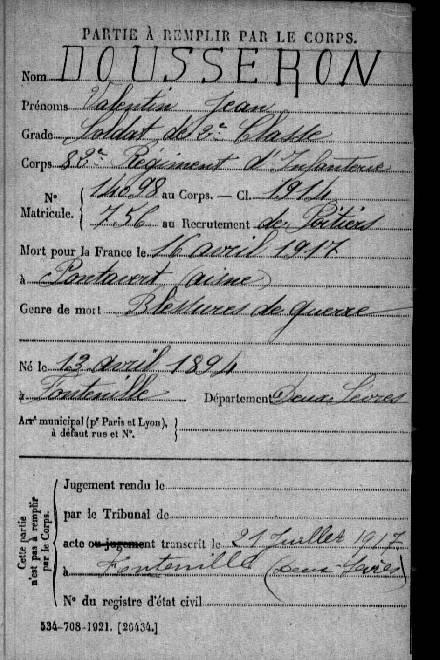 PARTIE À REMPLIR PAR LE CORPS.
Nom DOUSSERON
Prénoms Valentin Jean
Grade Soldat de 2e Classe
Corps 32e Régiment d'Infanterie
N° Matricule. { 14098 au Corps. — Cl. 1914
756 au Recrutement de Poitiers
Mort pour la France le 16 avril 1917
à Pontavert (Aisne)
Genre de mort Blessures de guerre
Né le 13 avril 1894
à Fontenille Département Deux-Sèvres
Arrt municipal (pr Paris et Lyon), à défaut rue et N°. }
Cette partie n'est pas à remplir par le Corps.
Jugement rendu le
par le Tribunal de
acte ou jugement transcrit le 21 Juillet 1917
à Fontenille (Deux-Sèvres)
N° du registre d'état civil
534-708-1921. [26434.]